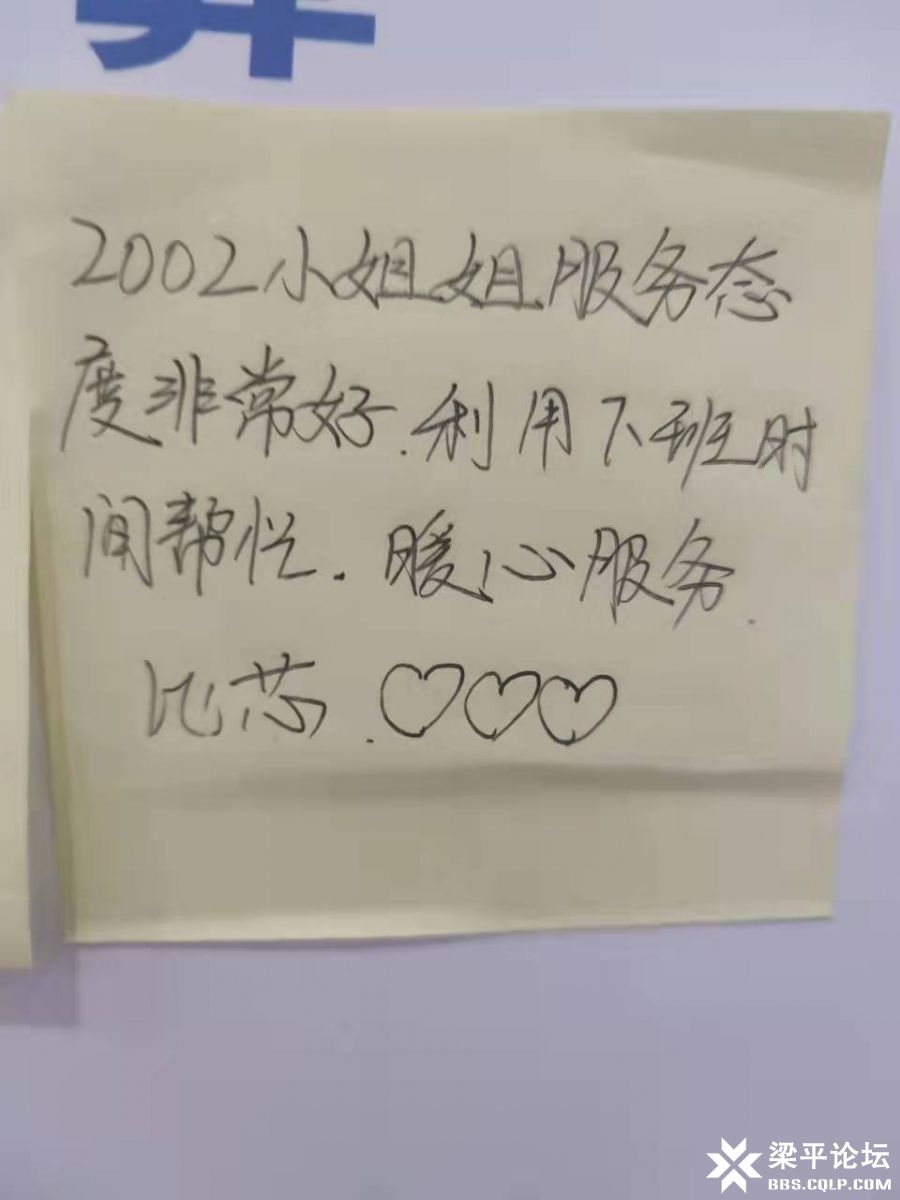 2002小姐姐服务态
度非常好.利用下班时
间帮忙.暖心服务.
比芯.♡♡♡
梁平论坛
BBS.CQLP.COM